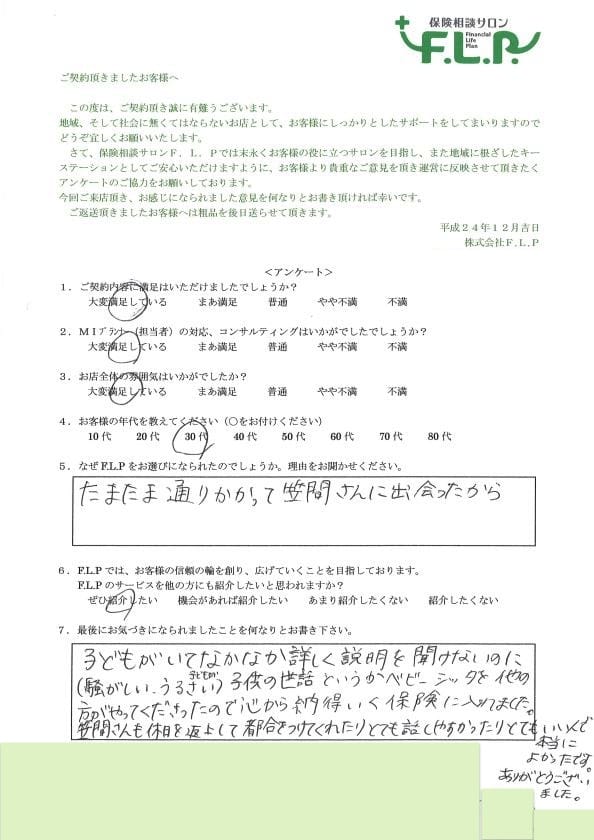 保険相談サロン
F.L.P.
Financial
Life
Plan
ご契約頂きましたお客様へ
この度は、ご契約頂き誠に有難うございます。
地域、そして社会に無くてはならないお店として、お客様にしっかりとしたサポートをしてまいりますので
どうぞ宜しくお願いいたします。
さて、保険相談サロンF．L．Pでは末永くお客様の役に立つサロンを目指し、また地域に根ざしたキー
ステーションとしてご安心いただけますように、お客様より貴重なご意見を頂き運営に反映させて頂きたく
アンケートのご協力をお願いしております。
今回ご来店頂き、お感じになられました意見を何なりとお書き頂ければ幸いです。
ご返送頂きましたお客様へは粗品を後日送らせて頂きます。
平成２４年１２月吉日
株式会社F.L.P
＜アンケート＞
１．ご契約内容に満足はいただけましたでしょうか？
大変満足している　まあ満足　普通　やや不満　不満
２．ＭＩプランナー（担当者）の対応、コンサルティングはいかがでしたでしょうか？
大変満足している　まあ満足　普通　やや不満　不満
３．お店全体の雰囲気はいかがでしたか？
大変満足している　まあ満足　普通　やや不満　不満
４．お客様の年代を教えてください（○をお付けください）
10代　20代　30代　40代　50代　60代　70代　80代
５．なぜF.L.Pをお選びになられたのでしょうか。理由をお聞かせください。
たまたま通りかかって笠間さんに出会ったから
６．F.L.Pでは、お客様の信頼の輪を創り、広げていくことを目指しております。
F.L.Pのサービスを他の方にも紹介したいと思われますか？
ぜひ紹介したい　機会があれば紹介したい　あまり紹介したくない　紹介したくない
７．最後にお気づきになられましたことを何なりとお書き下さい。
子どもがいてなかなか詳しく説明を聞けないのに
(騒がしい、うるさい)子供の世話というかベビーシッタを他の
方がやってくださったので心から納得いく保険に入れました。
笠間さんも休日を返上して都合をつけてくれたりとても話しやすかったりとてもいい人で
本当に
よかったです。
ありがとうござい
ました。